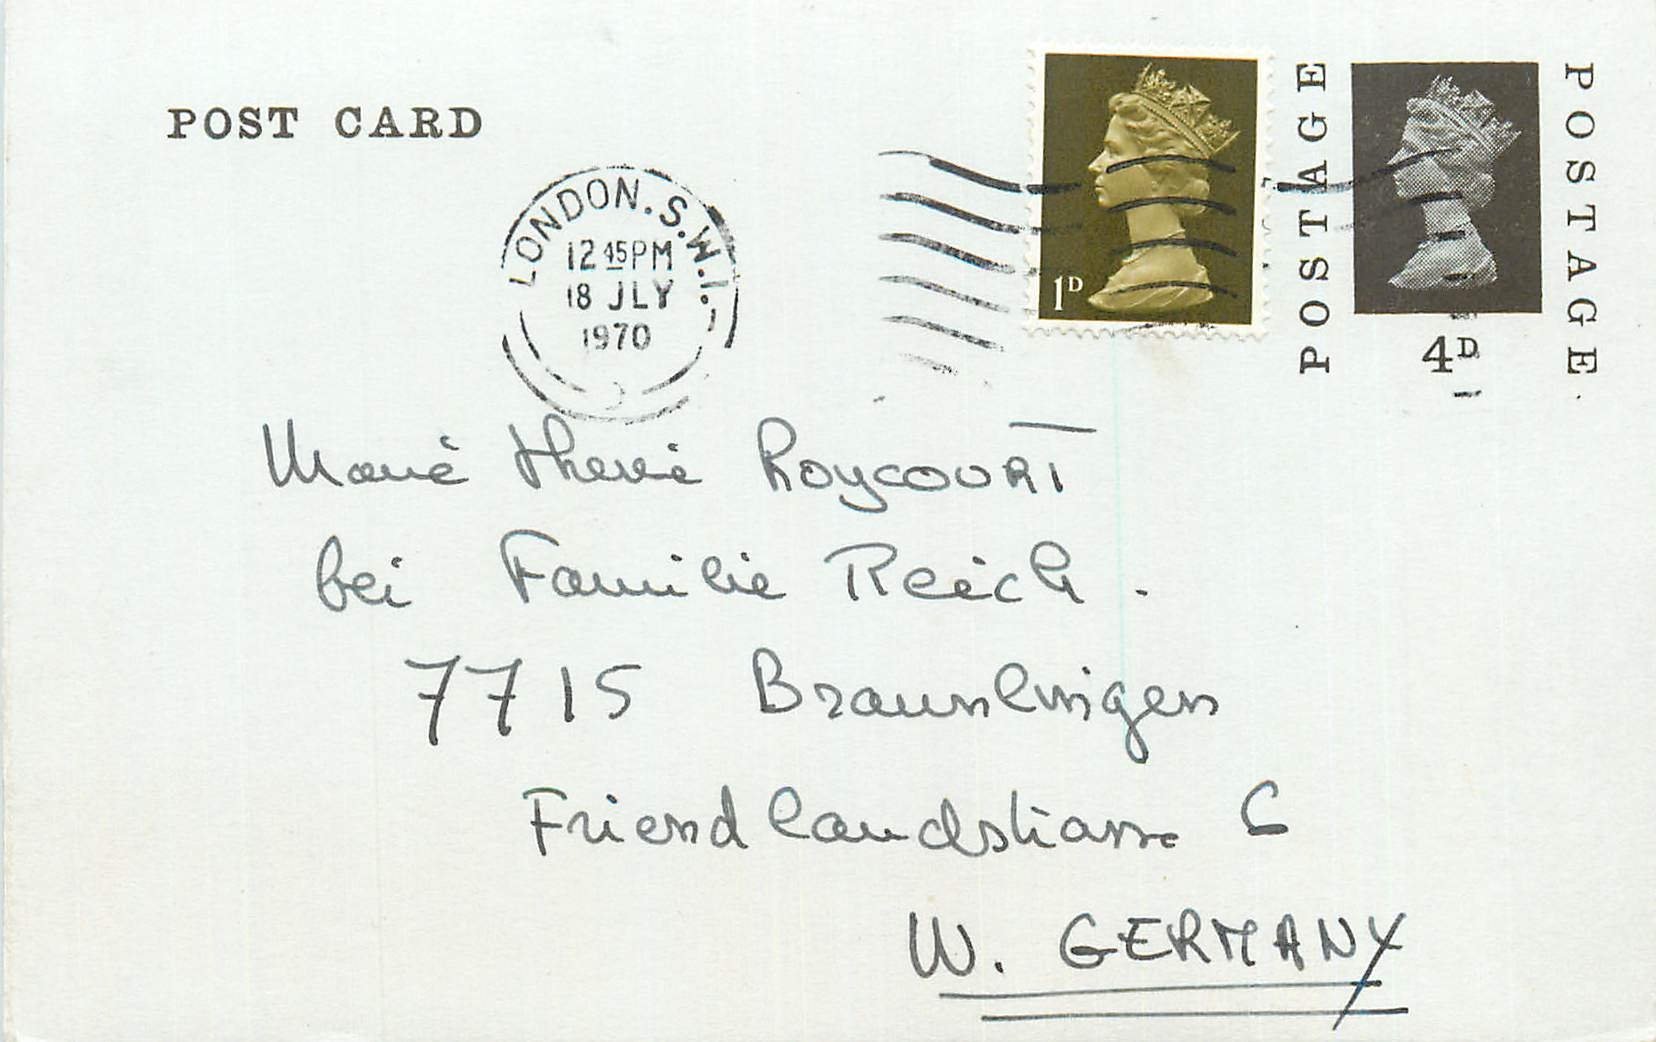 POST CARD
LONDON. S.W.1.
12 45 PM
18 JLY
1970
1D
POSTAGE
POSTAGE
4D
Marie Therese Roycourt
bei Familie Reich.
7715 Braunlingen
Friendlandstrasse 6
W. GERMANY